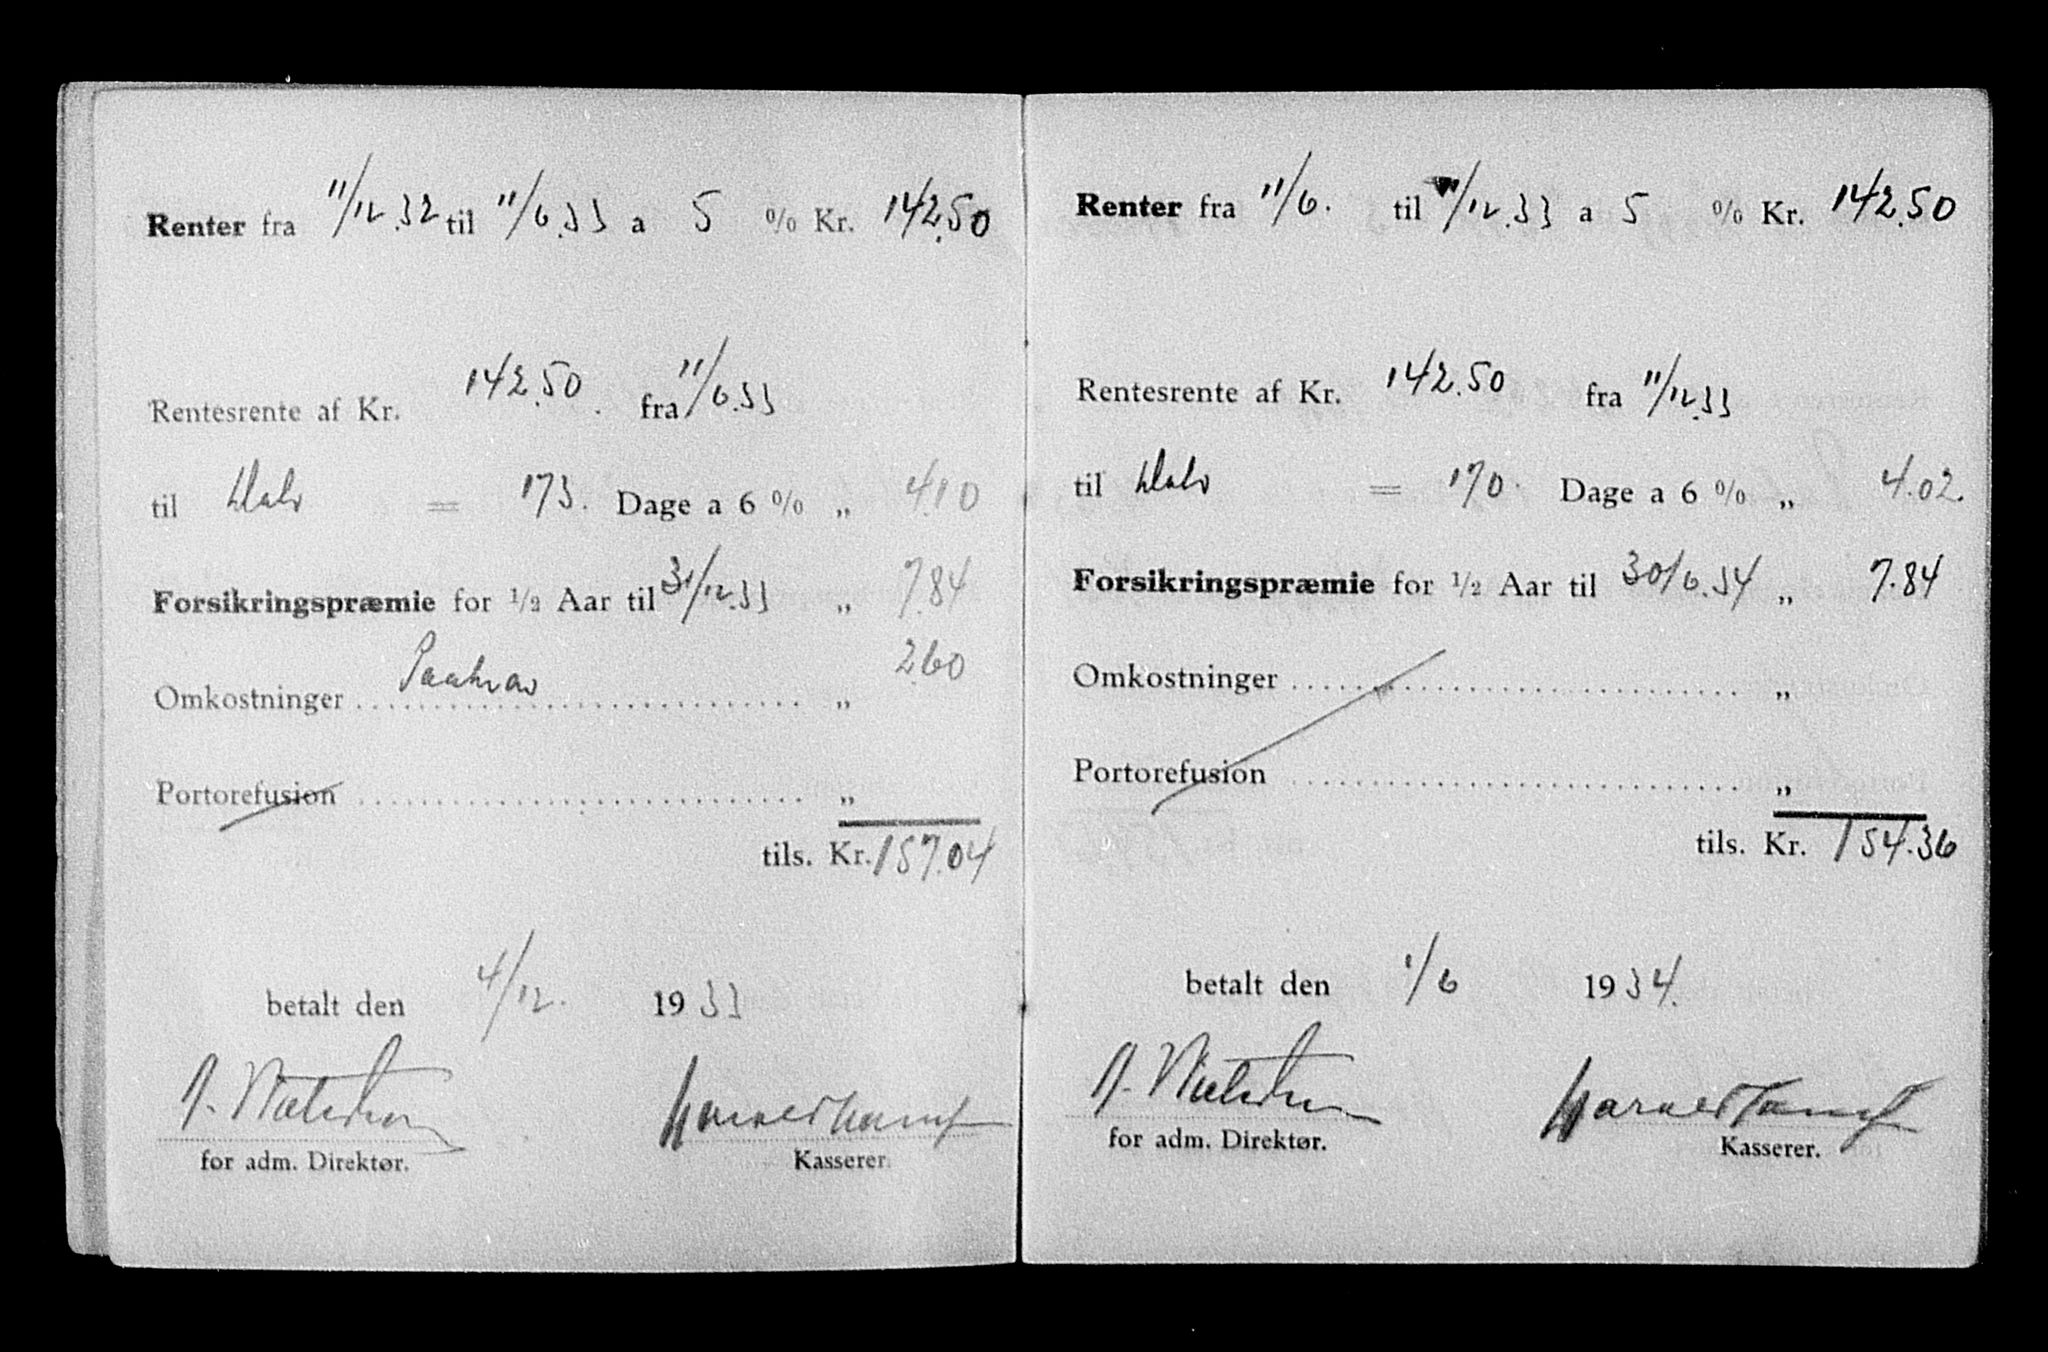 Renter fra 11/12.32 til 11/6.33 a 5 % Kr. 142.50
Rentesrente af Kr. 142.50. fra 11/6.33
til Dato = 173. Dage a 6 % „ 4.10
Forsikringspræmie for 1/2 Aar til 31/12.33 „ 7.84
Omkostninger Paakrav „ 2.60
Portorefusion „
tils. Kr. 157.04
betalt den 4/12. 1933
for adm. Direktør. Kasserer.
Renter fra 11/6. til 11/12.33 a 5 % Kr. 142.50
Rentesrente af Kr. 142.50 fra 11/12.33
til Dato = 170. Dage a 6 % „ 4.02.
Forsikringspræmie for 1/2 Aar til 30/6.34 „ 7.84
Omkostninger „
Portorefusion „
tils. Kr. 154.36
betalt den 1/6 1934.
for adm. Direktør. Kasserer.